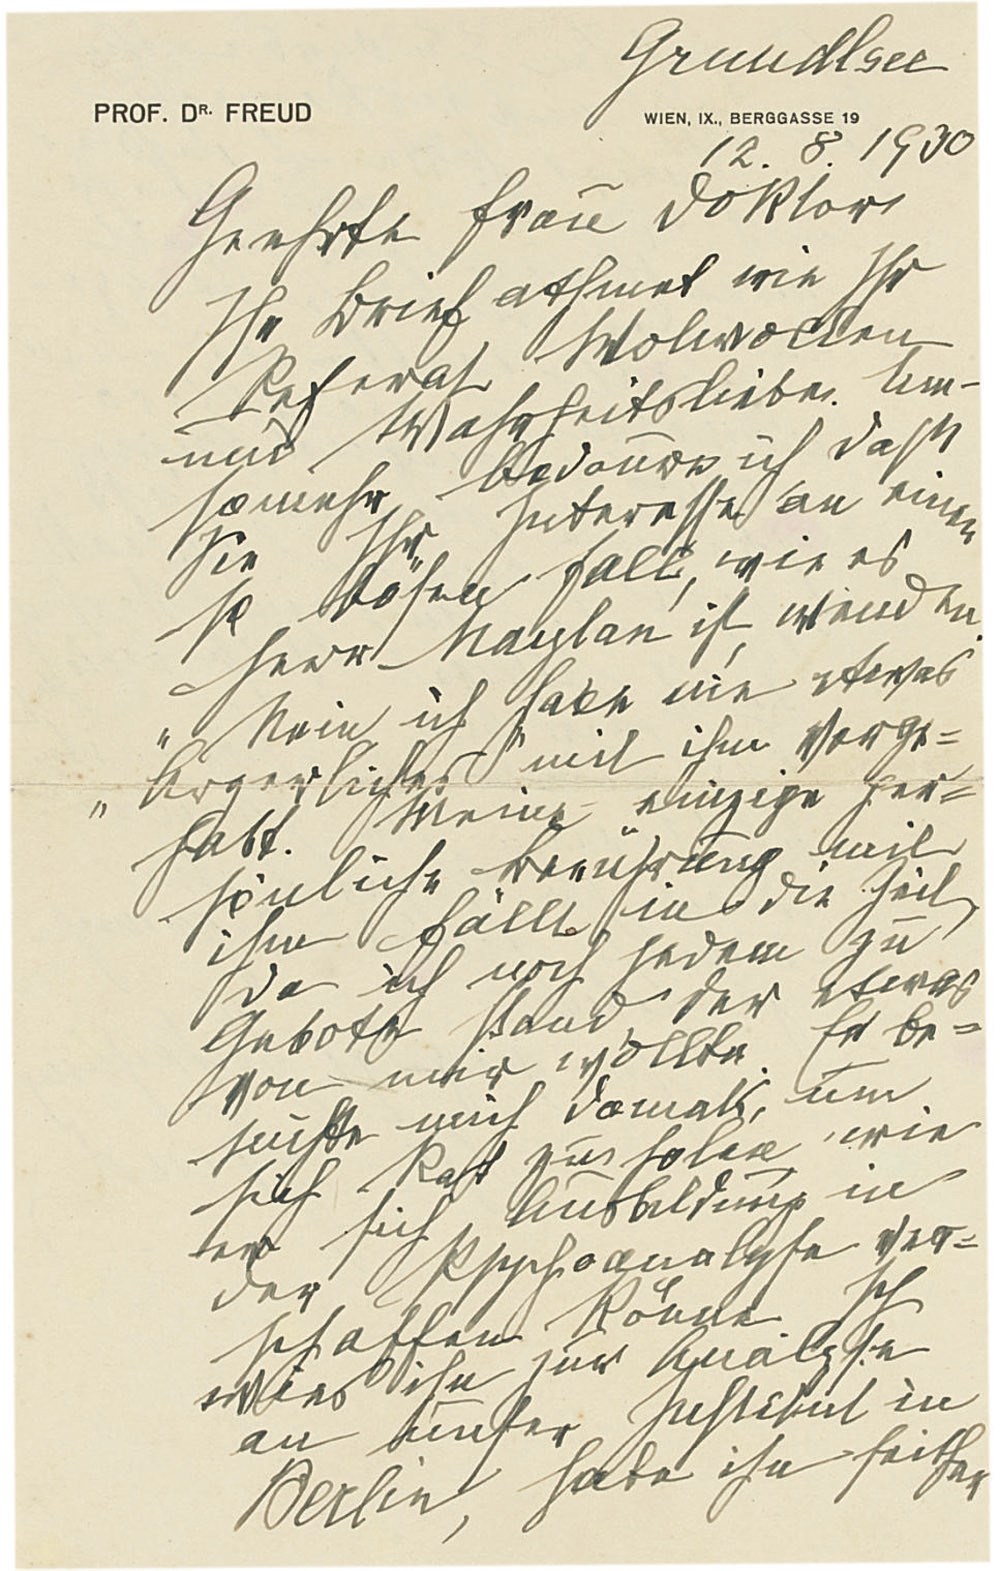 Grundlsee
PROF. DR. FREUD
WIEN, IX., BERGGASSE 19
12. 8. 1930
Geehrte Frau Doktor
Ihr Brief athmet wie Ihr
Referat Wolwollen
und Wahrheitsliebe. Um-
somehr bedaure ich daß
Sie Ihr Interesse an einen
so bösen Fall, wie es
Herr Maylan ist, wenden.
" Nein ich habe nie etwas
" Ärgerliches" mit ihm vorge=
habt. Meine einzige per=
sönliche Berührung mit
ihm fällt in die Zeit,
da ich noch jedem zu
Gebote stand, der etwas
von mir wollte. Er be=
suchte mich damals, um
sich Rat zu holen wie
er sich Ausbildung in
der Psychoanalyse ver=
schaffen könne Ich
wies ihn zur Analyse
an unser Institut in
Berlin, habe ihn seither